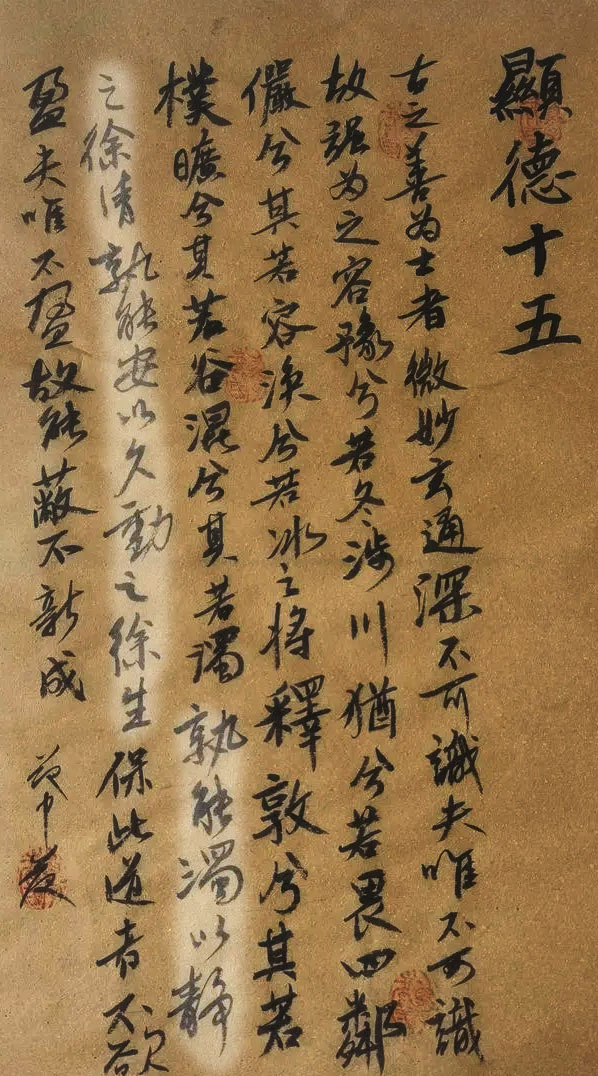 顯德十五
古之善为士者微妙玄通深不可識夫唯不可識
故强为之容豫兮若冬涉川猶兮若畏四鄰
儼兮其若容渙兮若冰之將釋敦兮其若
樸曠兮其若谷混兮其若濁孰能濁以靜
之徐清孰能安以久動之徐生保此道者不欲
盈夫唯不盈故能蔽不新成